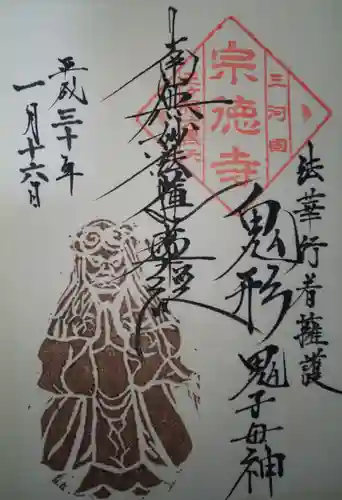 法華行者擁護
鬼形
鬼子母神
南無妙法蓮華経
平成三十年
一月十六日
三河国
宗徳寺